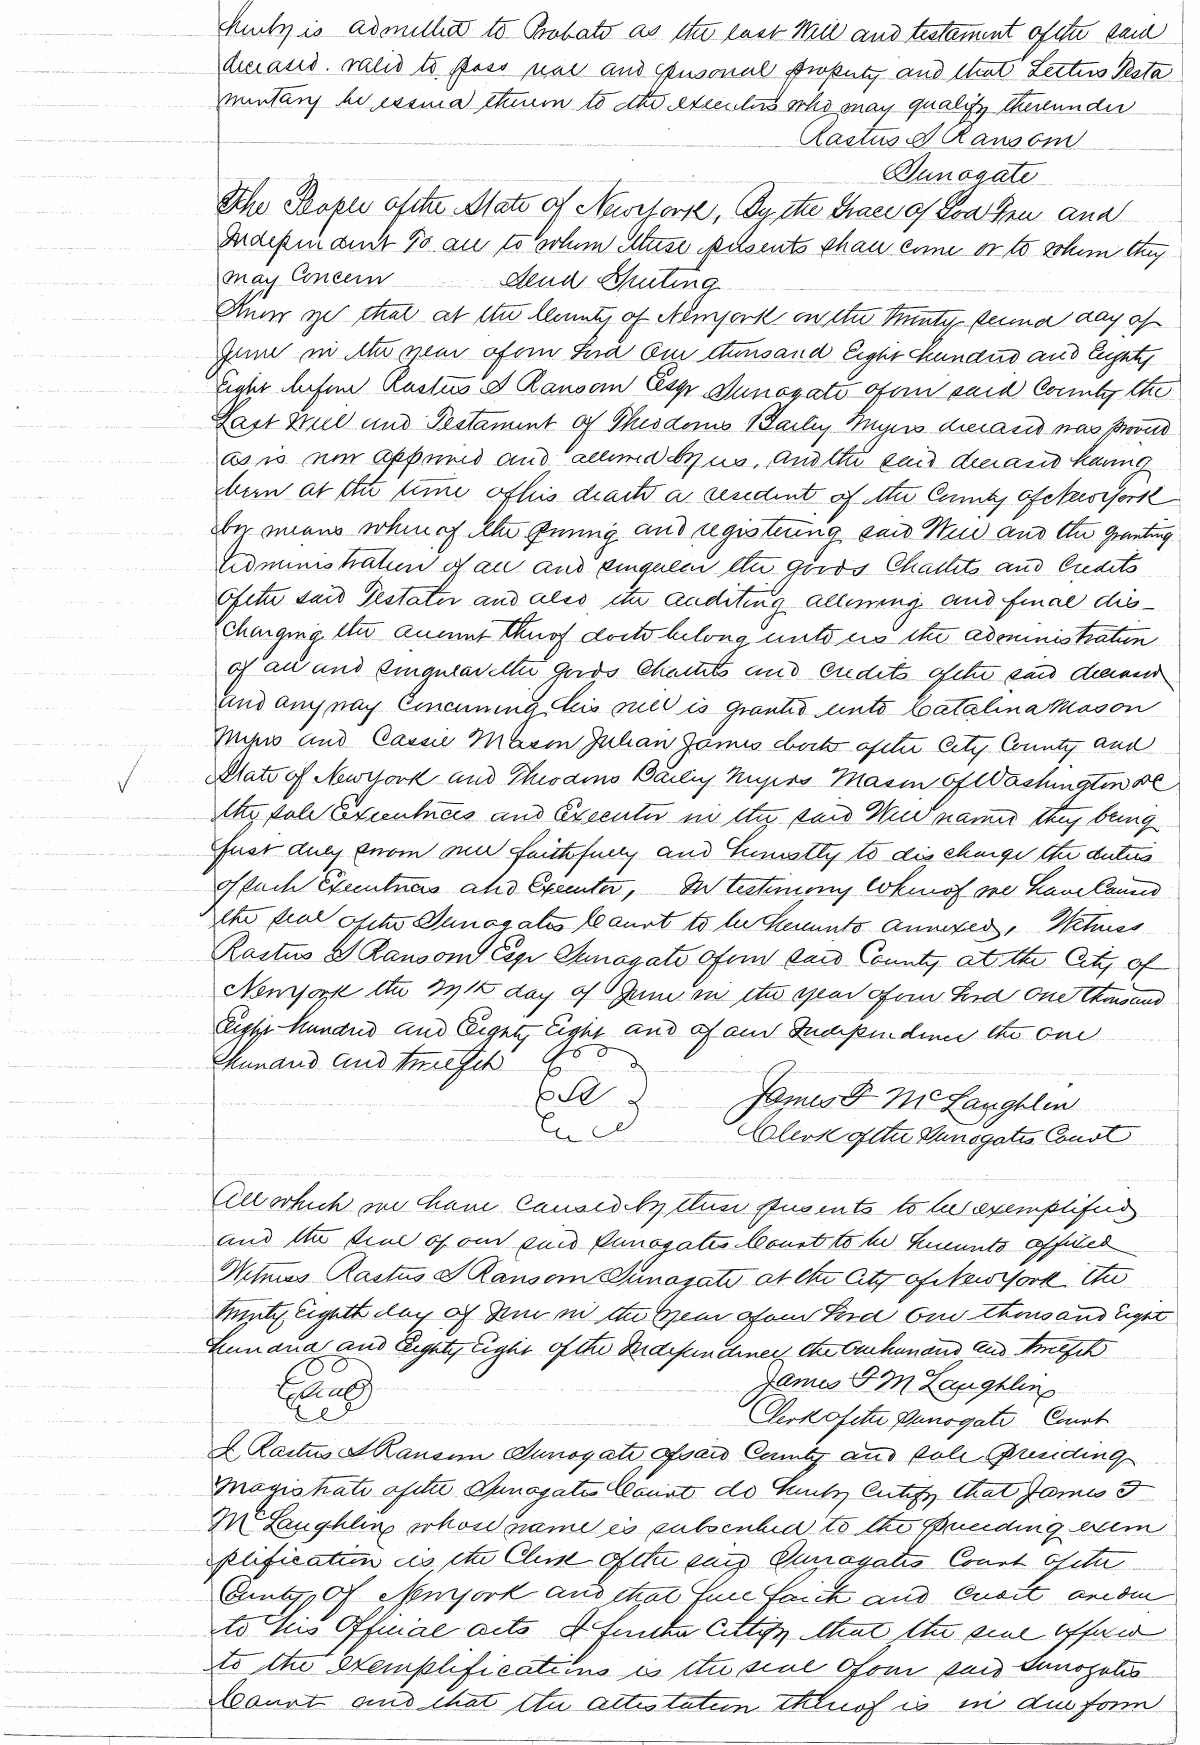 hereby is admitted to Probate as the last Will and testament of the said
deceased. valid to pass real and personal property and that Letters Testa
mentary be issued thereon to the executors who may qualify thereunder
Rastus S Ransom
Surrogate
The People of the State of New York, By the Grace of God Free and
Independent To all to whom these presents shall come or to whom they
may Concern Send Greeting
Know ye that at the County of New York on the twenty second day of
June in the year of our Lord One thousand Eight hundred and Eighty
Eight before Rastus S Ransom Esqr Surrogate of our said County the
Last Will and Testament of Theodorus Bailey Myers deceased was proved
as is now approved and allowed by us, and the said deceased having
been at the time of his death a resident of the County of New York
by means whereof the proving and registering said Will and the granting
administration of all and singular the goods Chattels and Credits
of the said Testator and also the auditing allowing and final dis-
charging the account thereof doth belong unto us the administration
of all and singular the goods Chattels and Credits of the said deceased
and any way Concerning his will is granted unto Catalina Mason
Myers and Cassie Mason Julian James both of the City County and
State of New York and Theodorus Bailey Myers Mason of Washington DC
the sole Executrices and Executor in the said Will named they being
first duly sworn well faithfully and honestly to discharge the duties
of such Executrices and Executor, In testimony Whereof we have Caused
the seal of the Surrogates Court to be hereunto annexed, Witness
Rastus S Ransom Esqr Surrogate of our said County at the City of
New York the 27th day of June in the year of our Lord One thousand
Eight hundred and Eighty Eight and of our Independence the one
hundred and twelfth
James F McLaughlin
Clerk of the Surrogates Court
All which we have caused by these presents to be exemplified
and the seal of our said Surrogates Court to be hereunto affixed
Witness Rastus S Ransom Surrogate at the City of New York the
twenty Eighth day of June in the year of our Lord One thousand Eight
hundred and Eighty Eight of the Independence the one hundred and twelfth
Seal
James F McLaughlin
Clerk of the Surrogate Court
I Rastus S Ransom Surrogate of said County and sole Presiding
Magistrate of the Surrogates Court do hereby Certify that James F
McLaughlin whose name is subscribed to the preceeding exem
plification is the Clerk of the said Surrogates Court of the
County Of New York and that full faith and credit are due
to his Official acts I further Certify that the seal affixed
to the exemplifications is the seal of our said Surrogates
Court and that the attestation thereof is in due form